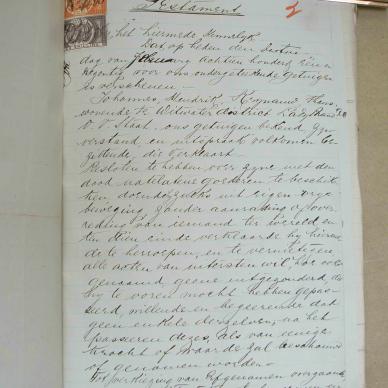 Testament
Zy het hiermede kennelyk
Dat op heden den sestus
dag van January Achtien honderd Een en
Negentig voor ons ondergetekende getuigen
is verschenen —
Johannes Hendrik
wonende te Witwater district Ladybrand
O. V. Staat, ons getuigen bekend, zyn
verstand en uitspraak volkomen be-
zittende, die verklaart
Besloten te hebben over zyne met den
dood natelatene goederen te beschik-
ken, doende zulks uit eigen vrye
beweging zonder aanrading of over-
reding van iemand ter wereld en
ten dien einde verklaarde hy hierme
de te herroepen, en te vernietigen
alle acten van uitersten wil, hoe ook
genaamd, geene uitgezonderd, die
hy te voren mocht hebben gepas-
seerd, willende en begeerende dat
geen enkele derzelven, na het
passeeren dezes, als van eenige
kracht of waarde zal beschouwd
of genomen worden —